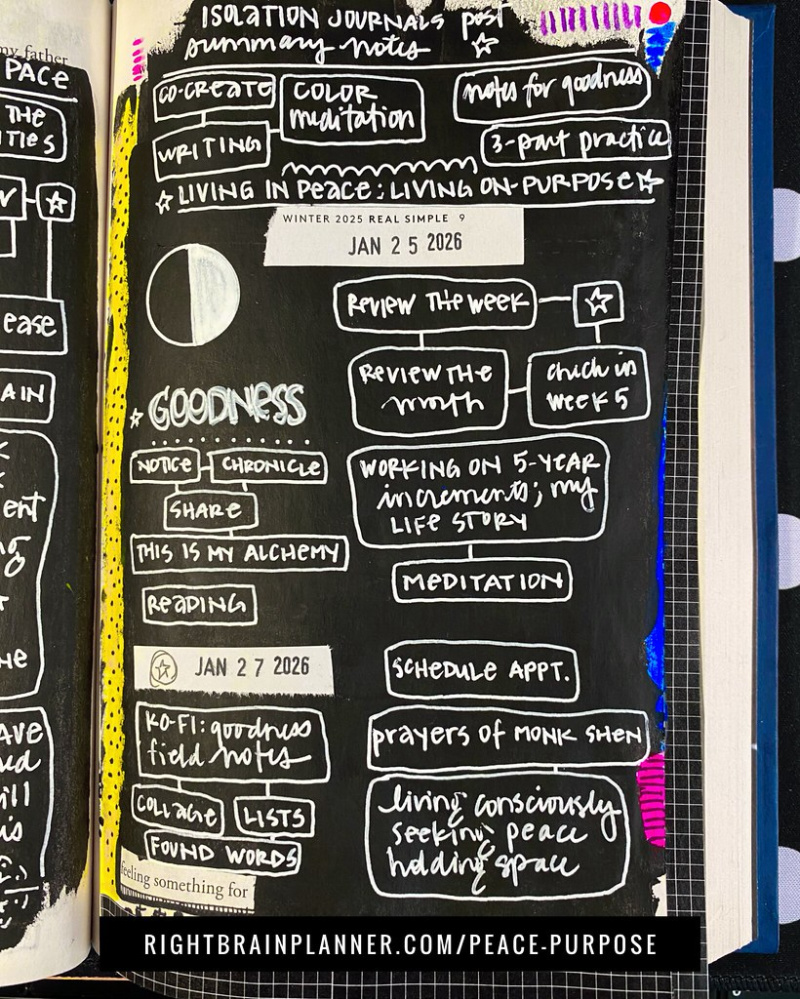 my father
PACE
THE
TIES
ease
AIN
ent
HE
AVE
ISOLATION JOURNALS post
summary notes
CO-CREATE
COLOR
meditation
WRITING
notes for goodness
3-part practice
LIVING IN PEACE; LIVING ON-PURPOSE
WINTER 2025 REAL SIMPLE 9
JAN 25 2026
REVIEW THE WEEK
REVIEW THE
month
check in
WEEK 5
GOODNESS
NOTICE
CHRONICLE
SHARE
THIS IS MY ALCHEMY
READING
WORKING ON 5-YEAR
increments; my
LIFE STORY
MEDITATION
JAN 27 2026
SCHEDULE APPT.
KO-FI: goodness
field notes
COLLAGE
LISTS
FOUND WORDS
feeling something for
prayers of MONK SHEN
living consciously
seeking peace
holding space
RIGHTBRAINPLANNER.COM/PEACE-PURPOSE